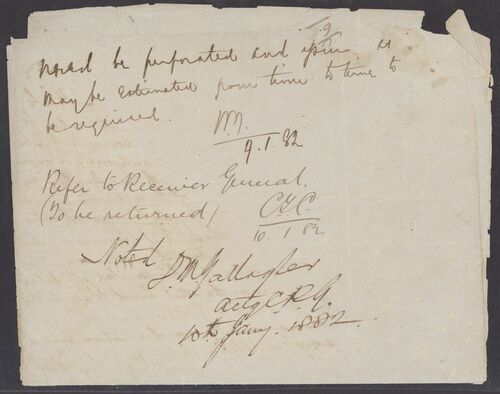 would be perforated and given as
may be estimated from time to time to
be required.
9.1.82
Refer to Receiver General.
(To be returned)
10.1.82
Noted
D McGallagher
Actg C.R.G.
10th Jany. 1882.